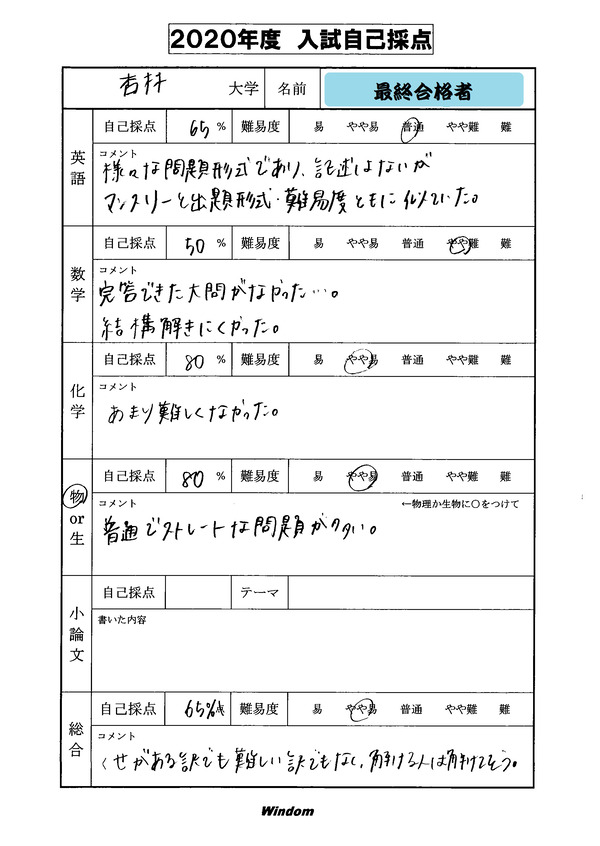 2020年度 入試自己採点
杏林 大学 名前 最終合格者
英語
自己採点 65 % 難易度 易 やや易 普通 やや難 難
コメント
様々な問題形式であり、記述はないが
マンスリーと出題形式・難易度ともに似ていた。
数学
自己採点 50 % 難易度 易 やや易 普通 やや難 難
コメント
完答できた大問がなかった…。
結構解きにくかった。
化学
自己採点 80 % 難易度 易 やや易 普通 やや難 難
コメント
あまり難しくなかった。
物or生
自己採点 80 % 難易度 易 やや易 普通 やや難 難
コメント ←物理か生物に○をつけて
普通でストレートな問題が多い。
小論文
自己採点 テーマ
書いた内容
総合
自己採点 65% 点 難易度 易 やや易 普通 やや難 難
コメント
くせがある訳でも難しい訳でもなく、解ける人は解けてそう。
Windom